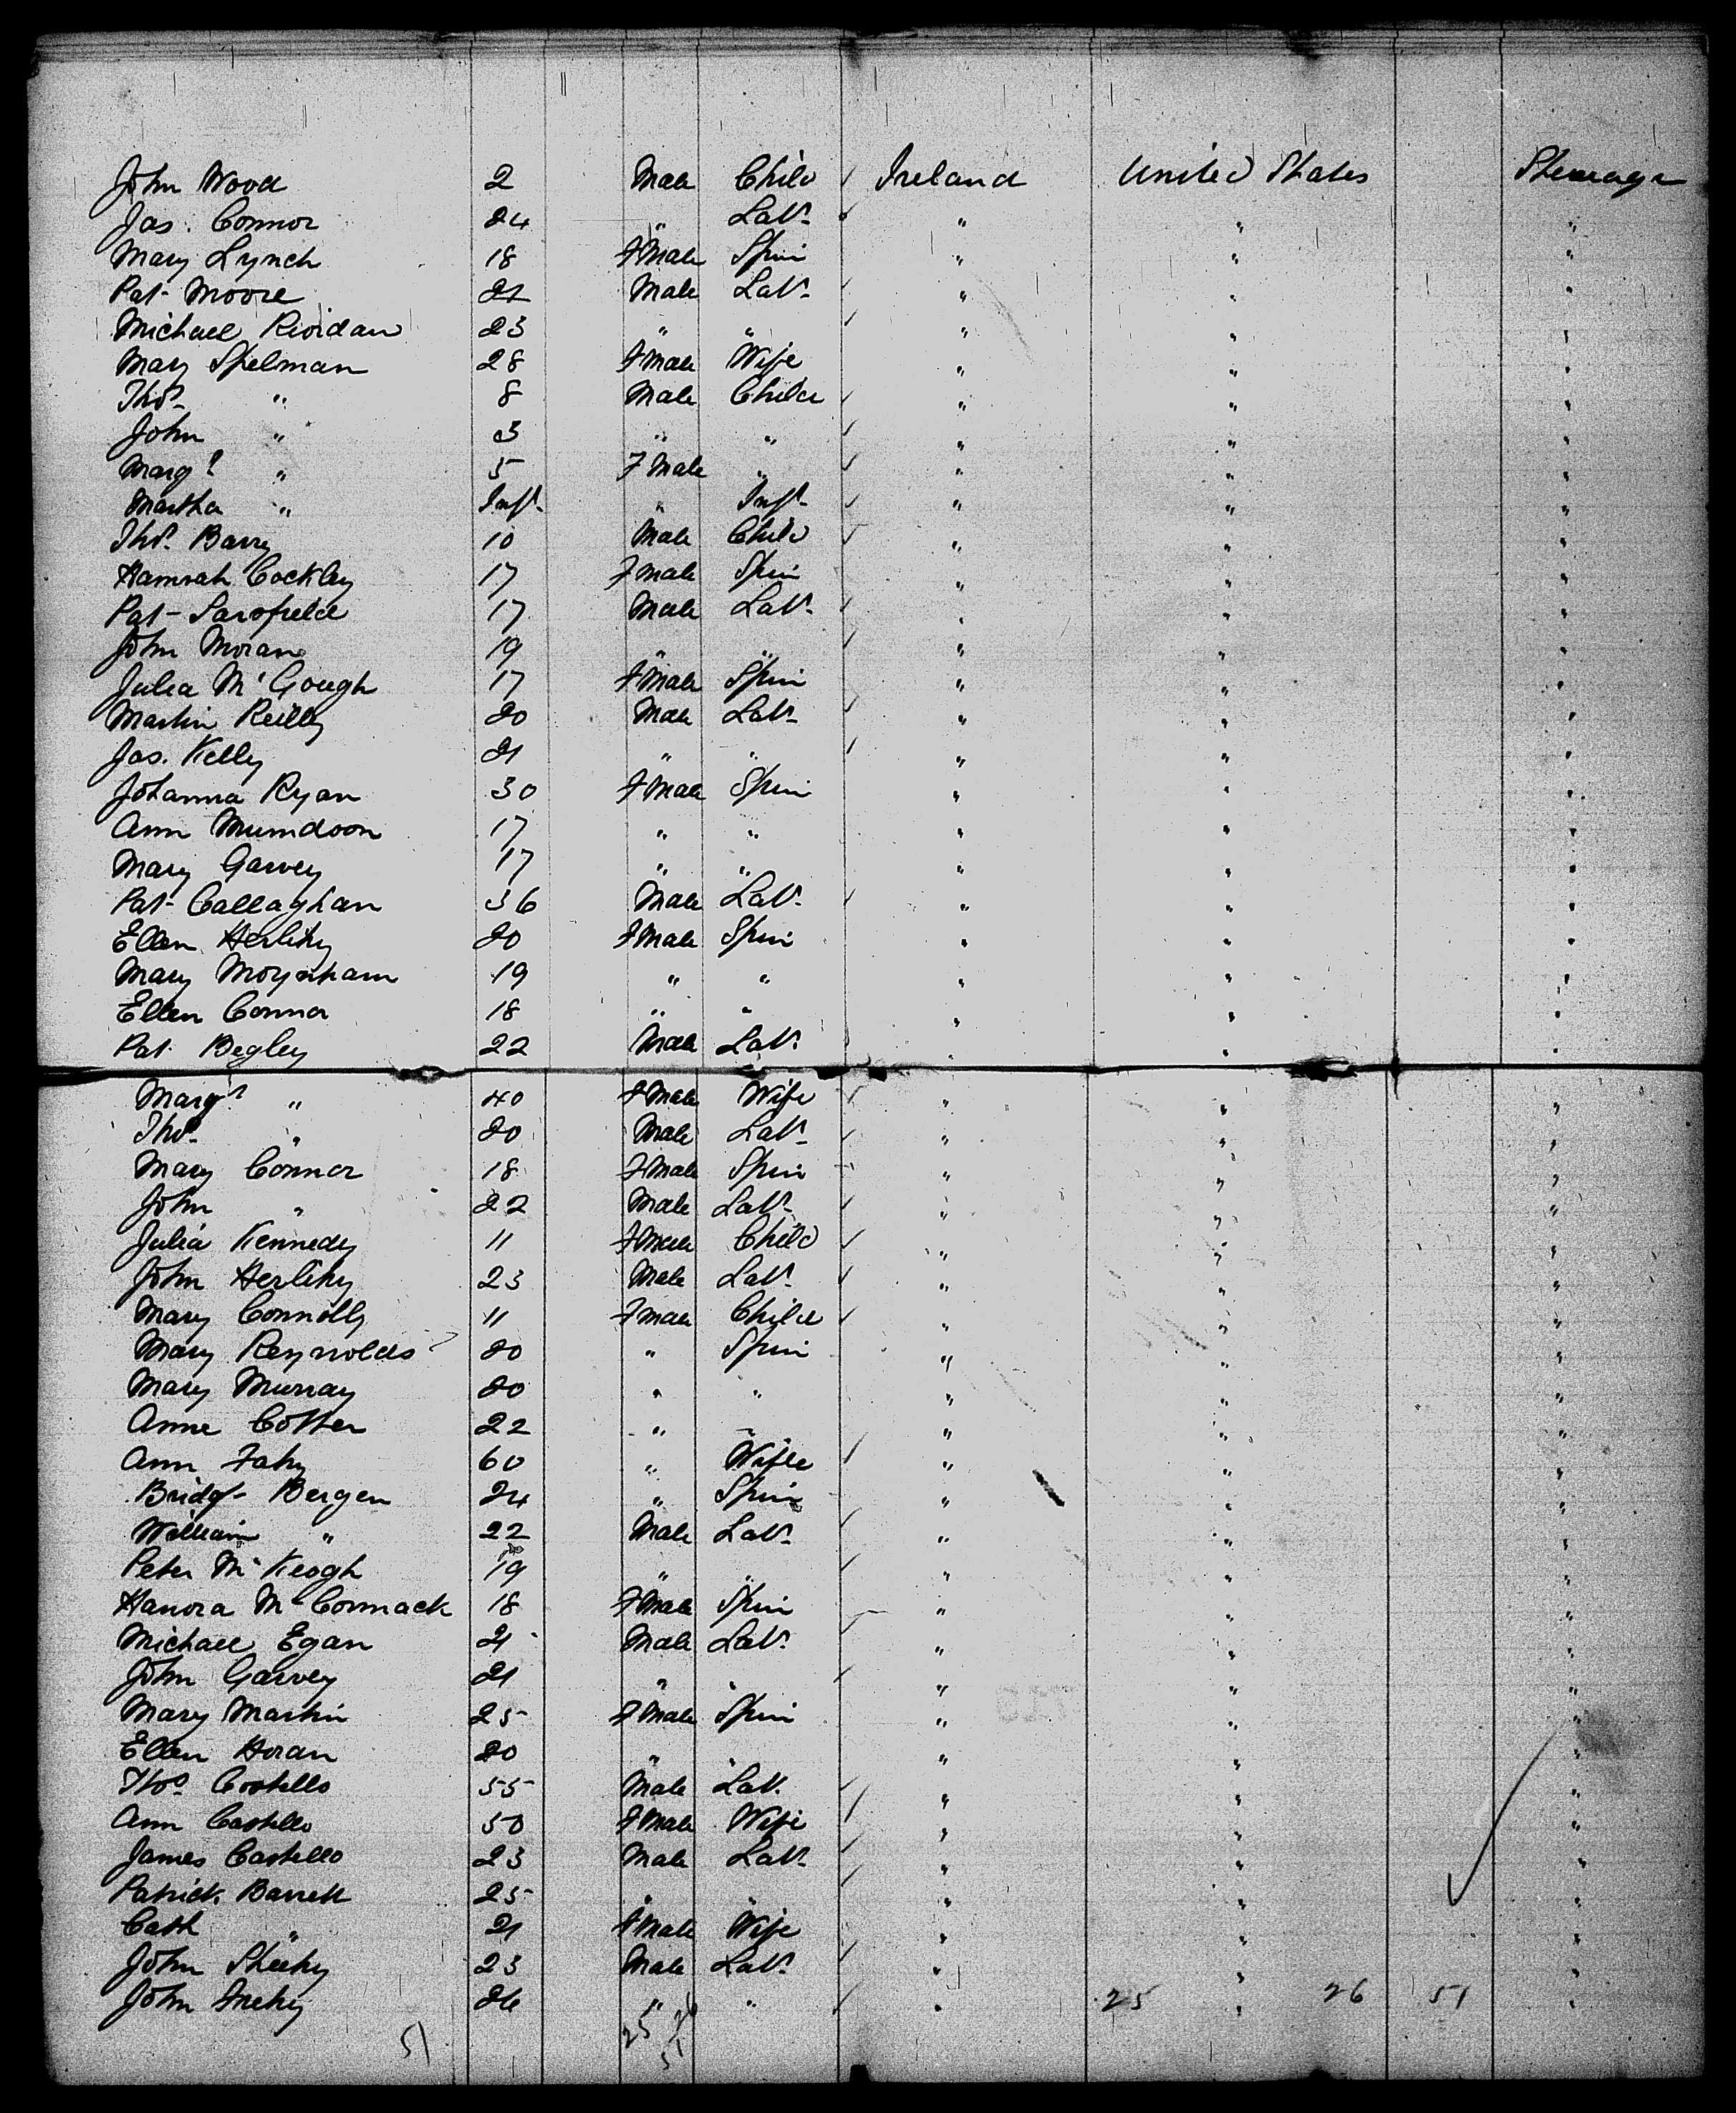 John Wood 2 Male Child Ireland United States Steerage
Jas. Connor 24 " Labr. " " "
Mary Lynch 18 Fmale Spin " " "
Pat Moore 21 Male Labr. " " "
Michael Riordan 23 " " " " "
Mary Spelman 28 Fmale Wife " " "
Thos. " 8 Male Child " " "
John " 3 " " " " "
Margt " 5 Fmale " " " "
Martha " Inft. " Inft. " " "
Thos. Barry 10 Male Child " " "
Hannah Cockley 17 Fmale Spin " " "
Pat Sarsfield 17 Male Labr. " " "
John Moran 19 " " " " "
Julia McGough 17 Fmale Spin " " "
Martin Reilly 20 Male Labr. " " "
Jas. Kelly 21 " " " " "
Johanna Ryan 30 Fmale Spin " " "
Ann Mumdoon 17 " " " " "
Mary Garvey 17 " " " " "
Pat Callaghan 36 Male Labr. " " "
Ellen Herlihy 20 Fmale Spin " " "
Mary Moynham 19 " " " " "
Ellen Connor 18 " " " " "
Pat. Begley 22 Male Labr. " " "
Margt " 40 Fmale Wife " " "
Thos. " 20 Male Labr. " " "
Mary Connor 18 Fmale Spin " " "
John " 22 Male Labr. " " "
Julia Kennedy 11 Fmale Child " " "
John Herlihy 23 Male Labr. " " "
Mary Connolly 11 Fmale Child " " "
Mary Reynolds 20 " Spin " " "
Mary Murray 20 " " " " "
Anne Cotter 22 " " " " "
Ann Fahy 60 " Wife " " "
Bridgt Bergen 24 " Spin " " "
William " 22 Male Labr. " " "
Peter McKeogh 19 " " " " "
Hanora McCormack 18 Fmale Spin " " "
Michael Egan 21 Male Labr. " " "
John Garvey 21 " " " " "
Mary Martin 25 Fmale Spin " " "
Ellen Horan 20 " " " " "
Thos. Costello 55 Male Labr. " " "
Ann Costello 50 Fmale Wife " " "
James Costello 23 Male Labr. " " "
Patrick Barrett 25 " " " " "
Cath " 21 Fmale Wife " " "
John Sheehy 23 Male Labr. " " "
John 26 " " " 25 " 26 51 "
51 25 26
51